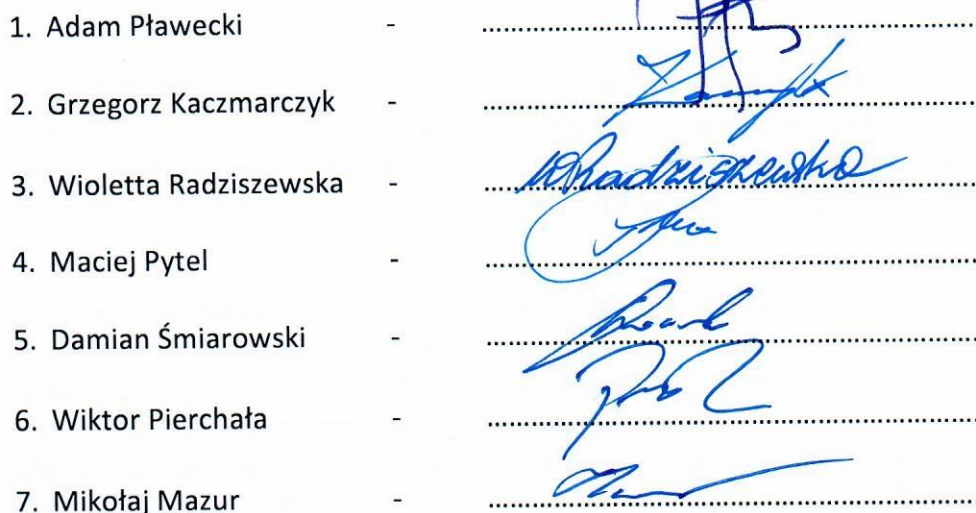 1. Adam Pławecki - ............................................................
2. Grzegorz Kaczmarczyk - ............................................................
3. Wioletta Radziszewska - WRadziszewska
4. Maciej Pytel - ............................................................
5. Damian Śmiarowski - ............................................................
6. Wiktor Pierchała - ............................................................
7. Mikołaj Mazur - ............................................................